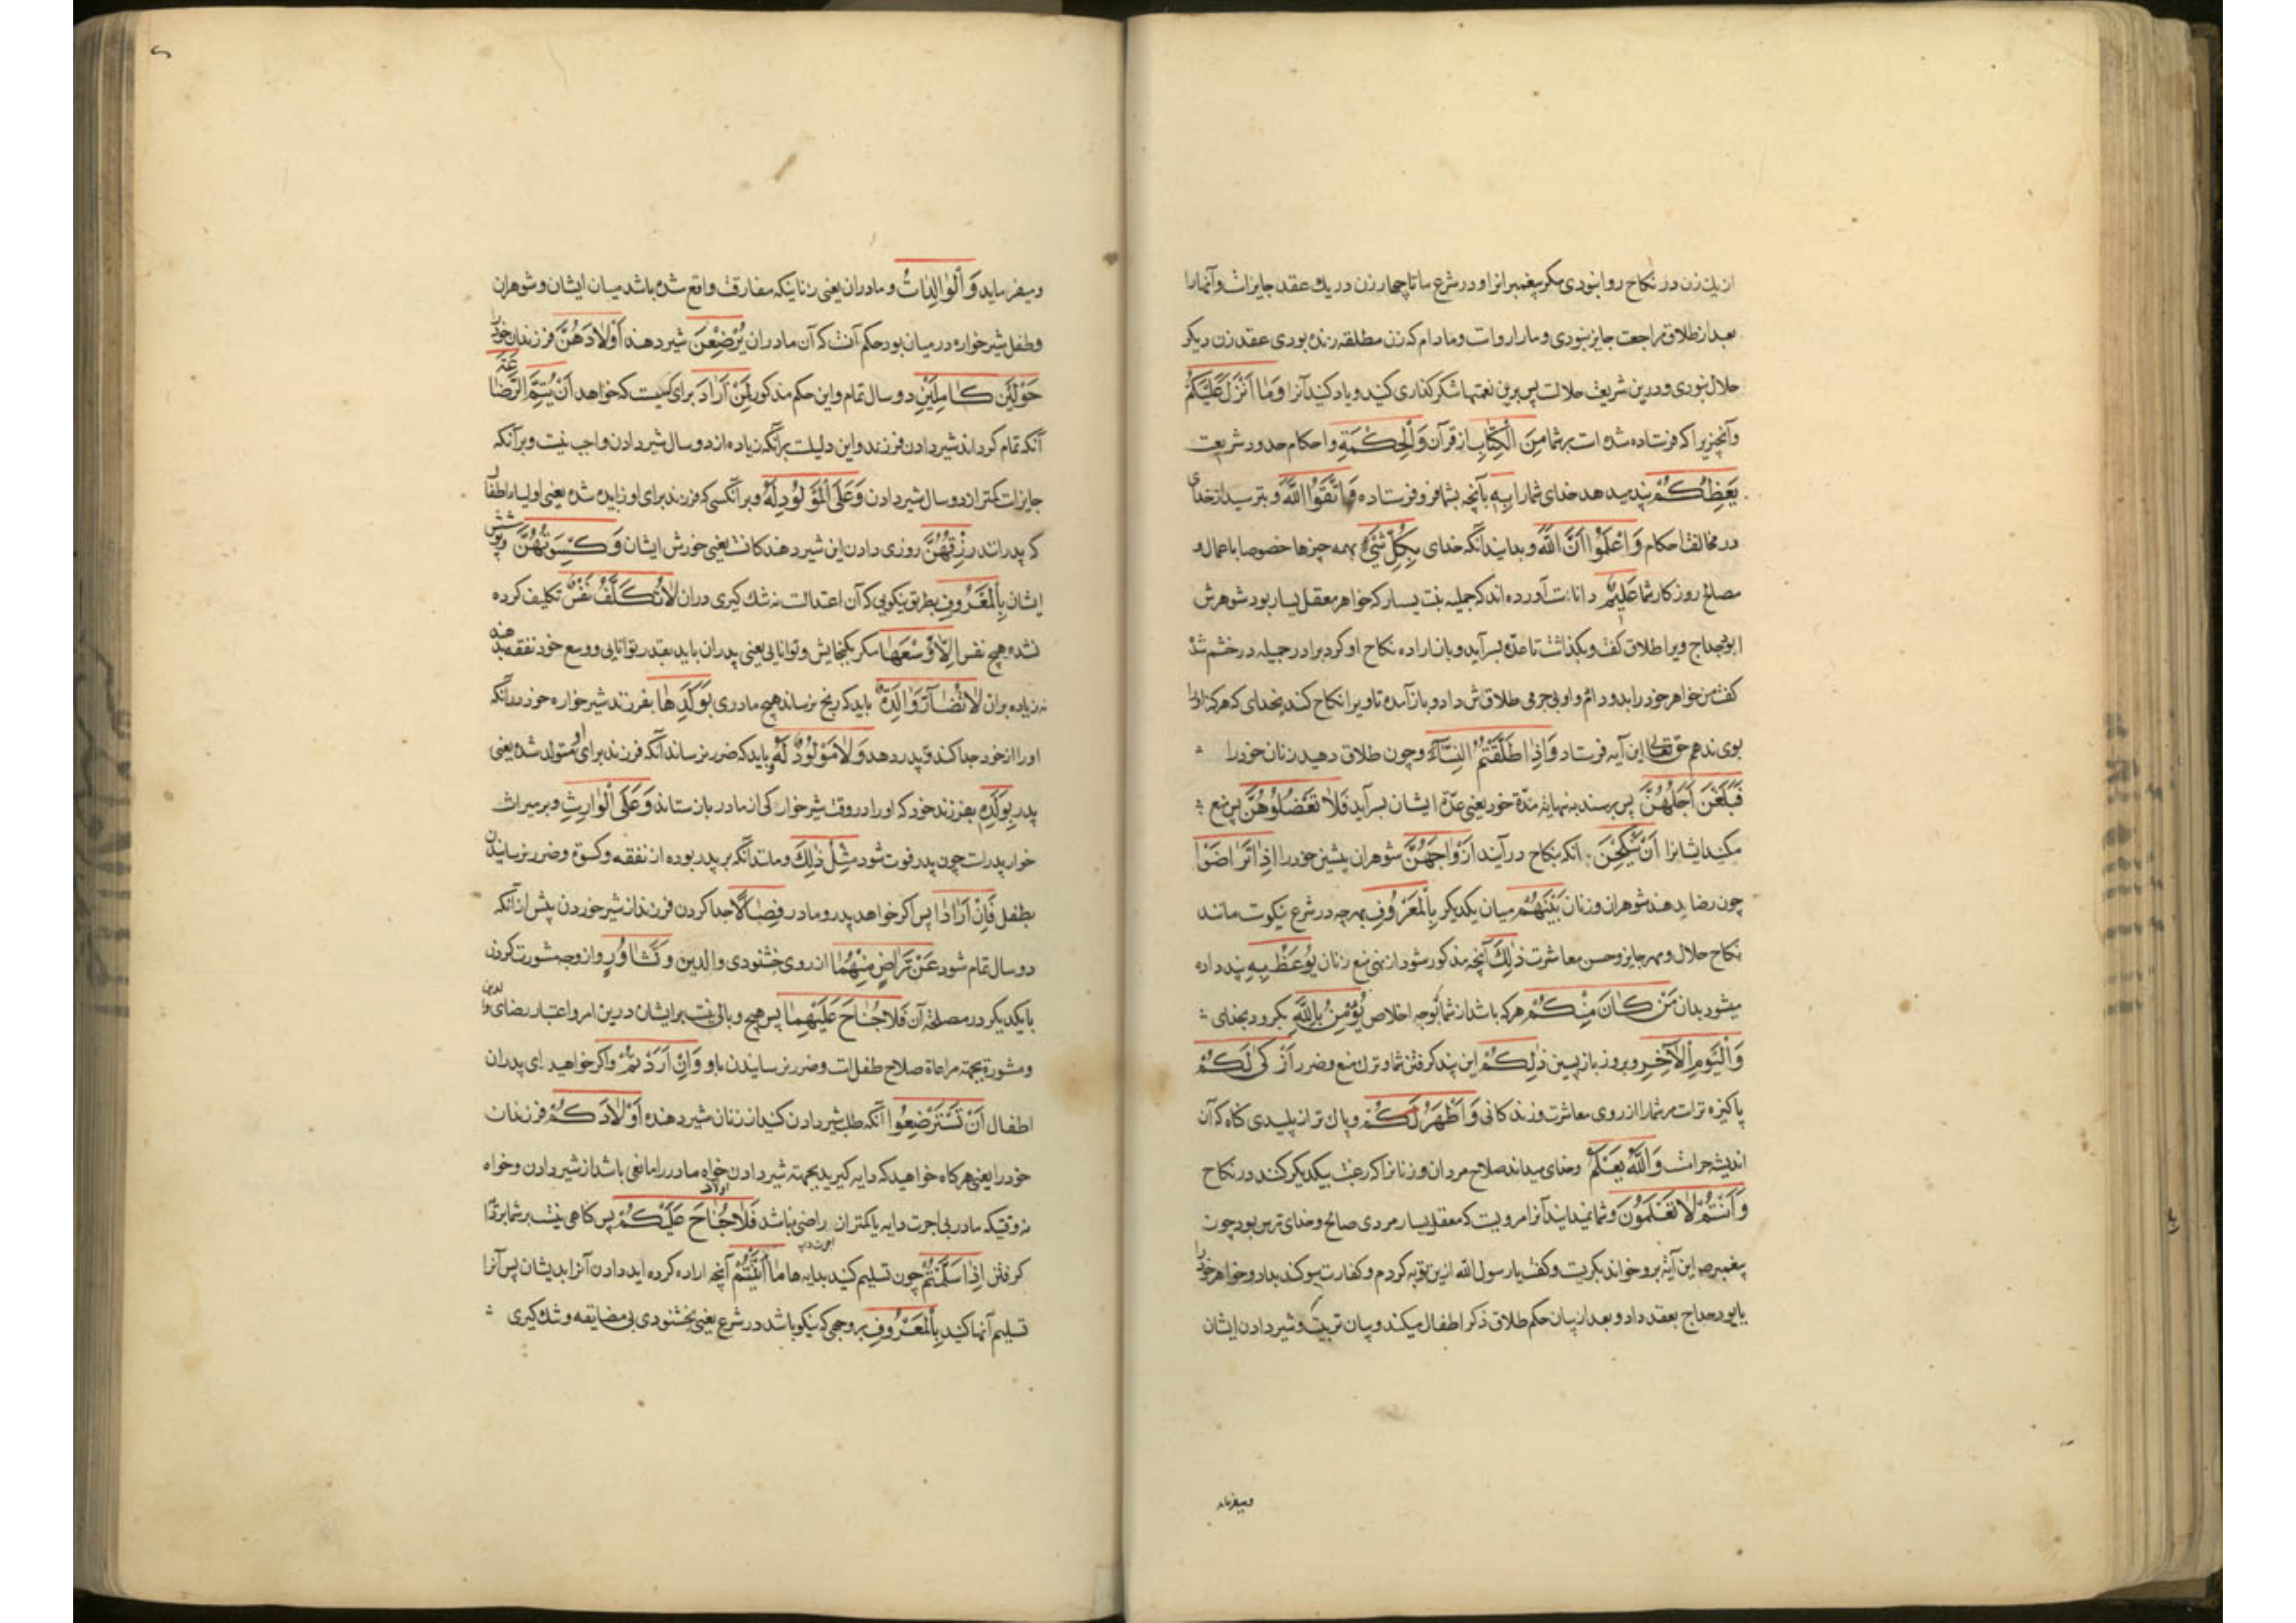 از یك زن در نكاح روا نبودی مكر پیغمبرانرا و در شرع ما تا چهار زن در یك عقد جایزاست و آنها را
بعد از طلاق مراجعت جایز نبودی و ما را رواست و مادام كه زن مطلقه زنده بودی عقد زن دیكر
حلال نبودی و درین شریعت حلالست پس برین نعمتها شكر كذاری كنید و یاد كنید آنرا وَمَا اَنْزَلَ عَلَیْكُمْ
و آنچیزیرا كه فرستاده شده است بر شما مِنَ الْكِتَابِ از قرآن وَالْحِكْمَةِ و احكام حدود شریعت
یَعِظُكُمْ پند میدهد خدای شما را بِهِ بآنچه بشما فرو فرستاده وَاتَّقُوا اللّٰهَ و بترسید از خدای
در مخالفت احكام وَاعْلَمُوا اَنَّ اللّٰهَ و بدانید آنكه خدای بِكُلِّ شَیْءٍ بهمه چیزها خصوصا باعمال و
مصالح روزكار شما عَلِیمٌ داناست آورده اند كه جمیله بنت یسار كه خواهر معقل یسار بود شوهرش
ابو مجداح ویرا طلاق كفت و بكذاشت تا عدّه بسر آید و باز اراده نكاح او كرد برادر جمیله در خشم شد
كفت من خواهر خود را بدو دادم و او بی جرمی طلاقش داد و باز آمده تا ویرا نكاح كند بخدای كه هركز او را
بوی ندهم حق تعالی این آیه فرستاد وَاِذَا طَلَّقْتُمُ النِّسَآءَ و چون طلاق دهید زنان خود را
فَبَلَغْنَ اَجَلَهُنَّ پس برسند به نهایة مدّة خود یعنی عدّة ایشان بسر آید فَلَا تَعْضُلُوهُنَّ پس منع
مكنید ایشانرا اَنْ یَنْكِحْنَ آنكه بنكاح در آیند اَزْوَاجَهُنَّ شوهران پیشین خود را اِذَا تَرَاضَوْا
چون رضا دهند شوهران و زنان بَیْنَهُمْ میان یكدیكر بِالْمَعْرُوفِ بهرچه در شرع نیكوست مانند
نكاح حلال و مهر جایز و حسن معاشرت ذٰلِكَ آنچه مذكور شود از نهی منع زنان یُوعَظُ بِهِ پند داده
میشود بدان مَنْ كَانَ مِنْكُمْ هركه باشد از شما بوجه اخلاص یُؤْمِنُ بِاللّٰهِ بكرود بخدای
وَالْیَوْمِ الْاٰخِرِ و بروز بازپسین ذٰلِكُمْ این پند كرفتن شما و ترك منع و ضرر اَزْكٰی لَكُمْ
پاكیزه تراست مر شما را از روی معاشرت و زندكانی وَاَطْهَرُ لَكُمْ و پاك تر از پلیدی كناه كه آن
اندیشه حرامست وَاللّٰهُ یَعْلَمُ و خدای میداند صلاح مردان و زنانرا كه رغبت بیكدیكر كنند در نكاح
وَاَنْتُمْ لَا تَعْلَمُونَ و شما نمیدانید آنرا مرویست كه معقل یسار مردی صالح و خدای ترس بود چون
پیغمبر ص این آیة برو خواند بكریست و كفت یا رسول الله ازین توبه كردم و كفارت سوكند بداد و خواهر خود را
بابو دحداح بعقد داد و بعد از بیان حكم طلاق ذكر اطفال میكند و بیان تربیت و شیر دادن ایشان
و میفرماید
و میفرماید وَالْوَالِدَاتُ و مادران یعنی زنانیكه مفارقت واقع شده باشد میان ایشان و شوهران
و طفل شیرخواره در میان بود حكم آنست كه آن مادران یُرْضِعْنَ شیر دهند اَوْلَادَهُنَّ فرزندان خود را
حَوْلَیْنِ كَامِلَیْنِ دو سال تمام و این حكم مذكور لِمَنْ اَرَادَ برای كسیست كه خواهد اَنْ یُتِمَّ الرَّضَاعَةَ
آنكه تمام كرداند شیر دادن فرزند و این دلیلست برآنكه زیاده از دو سال شیر دادن واجب نیست و برآنكه
جایزاست كمتر از دو سال شیر دادن وَعَلَی الْمَوْلُودِ لَهُ و برآنكسی كه فرزند برای او زاییده شده یعنی اولیاء اطفال
كه پدرانند رِزْقُهُنَّ روزی دادن این شیر دهندكانست یعنی خورش ایشان وَكِسْوَتُهُنَّ و پوشش
ایشان بِالْمَعْرُوفِ بطریق نیكویی كه آن اعتدالست نه تنك كیری در آن لَا تُكَلَّفُ نَفْسٌ تكلیف كرده
نشده هیچ نفس اِلَّا وُسْعَهَا مكر بكنجایش و توانایی یعنی پدران باید بقدر توانایی و وسع خود نفقه دهند
نه زیاده بران لَا تُضَآرَّ وَالِدَةٌ باید كه رنج نرساند هیچ مادری بِوَلَدِهَا بفرزند شیرخواره خود بدآنكه
او را از خود جدا كند و بپدر دهد وَلَا مَوْلُودٌ لَهُ و باید كه ضرر نرساند آنكه فرزند برای او متولد شده یعنی
پدر بِوَلَدِهِ بفرزند خود كه او را در وقت شیرخواركی از مادر باز ستاند وَعَلَی الْوَارِثِ و بر میراث
خوار پدراست چون پدر فوت شود مِثْلُ ذٰلِكَ و مانند آنكه بر پدر بوده از نفقه و كسوة و ضرر نرسانیدن
بطفل فَاِنْ اَرَادَا پس اكر خواهد پدر و مادر فِصَالًا جدا كردن فرزند از شیر خوردن پیش ازآنكه
دو سال تمام شود عَنْ تَرَاضٍ مِنْهُمَا از روی خشنودی والدین وَتَشَاوُرٍ و از وجه مشورت كردن
با یكدیكر در مصلحة آن فَلَا جُنَاحَ عَلَیْهِمَا پس هیچ وبالی نیست بر ایشان درین امر و اعتبار رضای والدین
و مشورة بجهة مراعاة صلاح طفل است و ضرر نرسانیدن باو وَاِنْ اَرَدْتُمْ و اكر خواهید ای پدران
اطفال اَنْ تَسْتَرْضِعُوا آنكه طلب شیر دادن كنید از زنان شیر دهنده اَوْلَادَكُمْ فرزندان
خود را یعنی هركاه خواهید كه دایه كیرید بجهة شیر دادن خواه مادر را مانعی باشد از شیر دادن و خواه
نه وقتیكه مادر بی اجرت دایه یا كمتر ازان راضی نباشد فَلَا جُنَاحَ عَلَیْكُمْ پس كناهی نیست بر شما
كرفتن اِذَا سَلَّمْتُمْ چون تسلیم كنید بدایه ها مَا اٰتَیْتُمْ آنچه اراده كرده اید دادن آنرا بدیشان پس آنرا
تسلیم آنها كنید بِالْمَعْرُوفِ بروجهی كه نیكو باشد در شرع یعنی بخشنودی بی مضایقه و تنك كیری